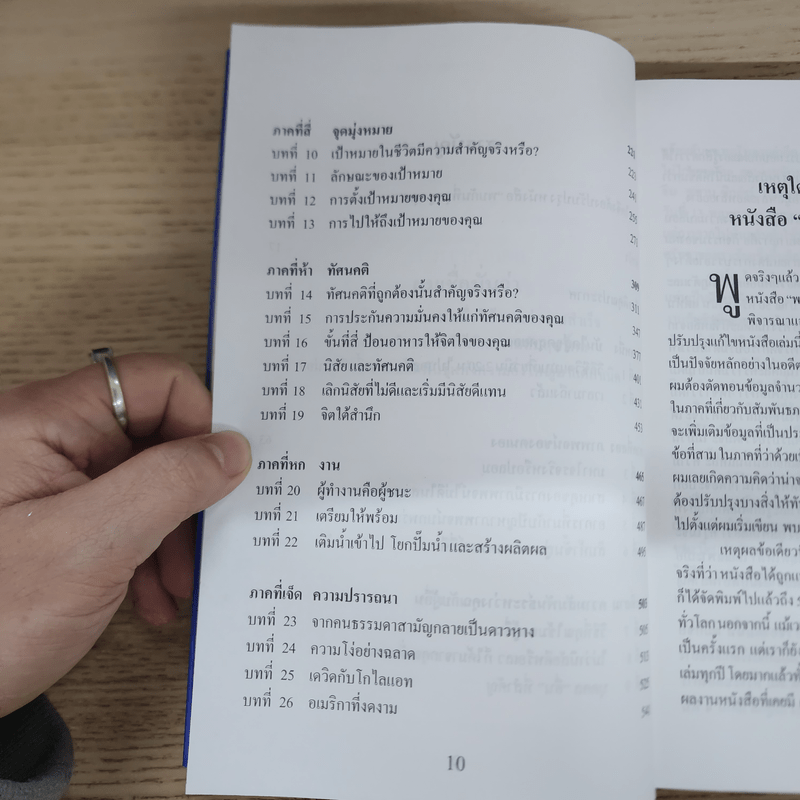 ภาคที่สี่ จุดมุ่งหมาย
บทที่ 10 เป้าหมายในชีวิตมีความสำคัญจริงหรือ?
บทที่ 11 ลักษณะของเป้าหมาย
บทที่ 12 การตั้งเป้าหมายของคุณ
บทที่ 13 การไปให้ถึงเป้าหมายของคุณ
ภาคที่ห้า ทัศนคติ 309
บทที่ 14 ทัศนคติที่ถูกต้องนั้นสำคัญจริงหรือ? 311
บทที่ 15 การประกันความมั่นคงให้แก่ทัศนคติของคุณ 347
บทที่ 16 ขั้นที่สี่ ป้อนอาหารให้จิตใจของคุณ 377
บทที่ 17 นิสัยและทัศนคติ 401
บทที่ 18 เลิกนิสัยที่ไม่ดีและเริ่มมีนิสัยดีแทน 431
บทที่ 19 จิตใต้สำนึก 453
ภาคที่หก งาน 465
บทที่ 20 ผู้ทำงานคือผู้ชนะ 467
บทที่ 21 เตรียมให้พร้อม 487
บทที่ 22 เติมน้ำเข้าไป โยกปั๊มน้ำ และสร้างผลิตผล 495
ภาคที่เจ็ด ความปรารถนา
บทที่ 23 จากคนธรรมดาสามัญกลายเป็นดาวหาง
บทที่ 24 ความโง่อย่างฉลาด
บทที่ 25 เดวิดกับโกไลแอท
บทที่ 26 อเมริกาที่งดงาม
10
หนังสือ “
พูดจริงๆแล้ว
หนังสือ“พ
พิจารณาแ
ปรับปรุงแก้ไขหนังสือเล่มนี้
เป็นปัจจัยหลักอย่างในอดีต
ผมต้องตัดทอนข้อมูลจำนว
ในภาคที่เกี่ยวกับสัมพันธภ
จะเพิ่มเติมข้อมูลที่เป็นประ
ข้อที่สาม ในภาคที่ว่าด้วยเ
ผมเลยเกิดความคิดว่าน่าจ
ต้องปรับปรุงบางสิ่งให้ทั
ไปตั้งแต่ผมเริ่มเขียน พบ
เหตุผลข้อเดียว
จริงที่ว่า หนังสือได้ถูกแ
ก็ได้จัดพิมพ์ไปแล้วถึง
ทั่วโลก นอกจากนี้ แม้เว
เป็นครั้งแรก แต่เราก็ยัง
เล่มทุกปี โดยมากแล้วทั
ผลงานหนังสือที่เคยมี